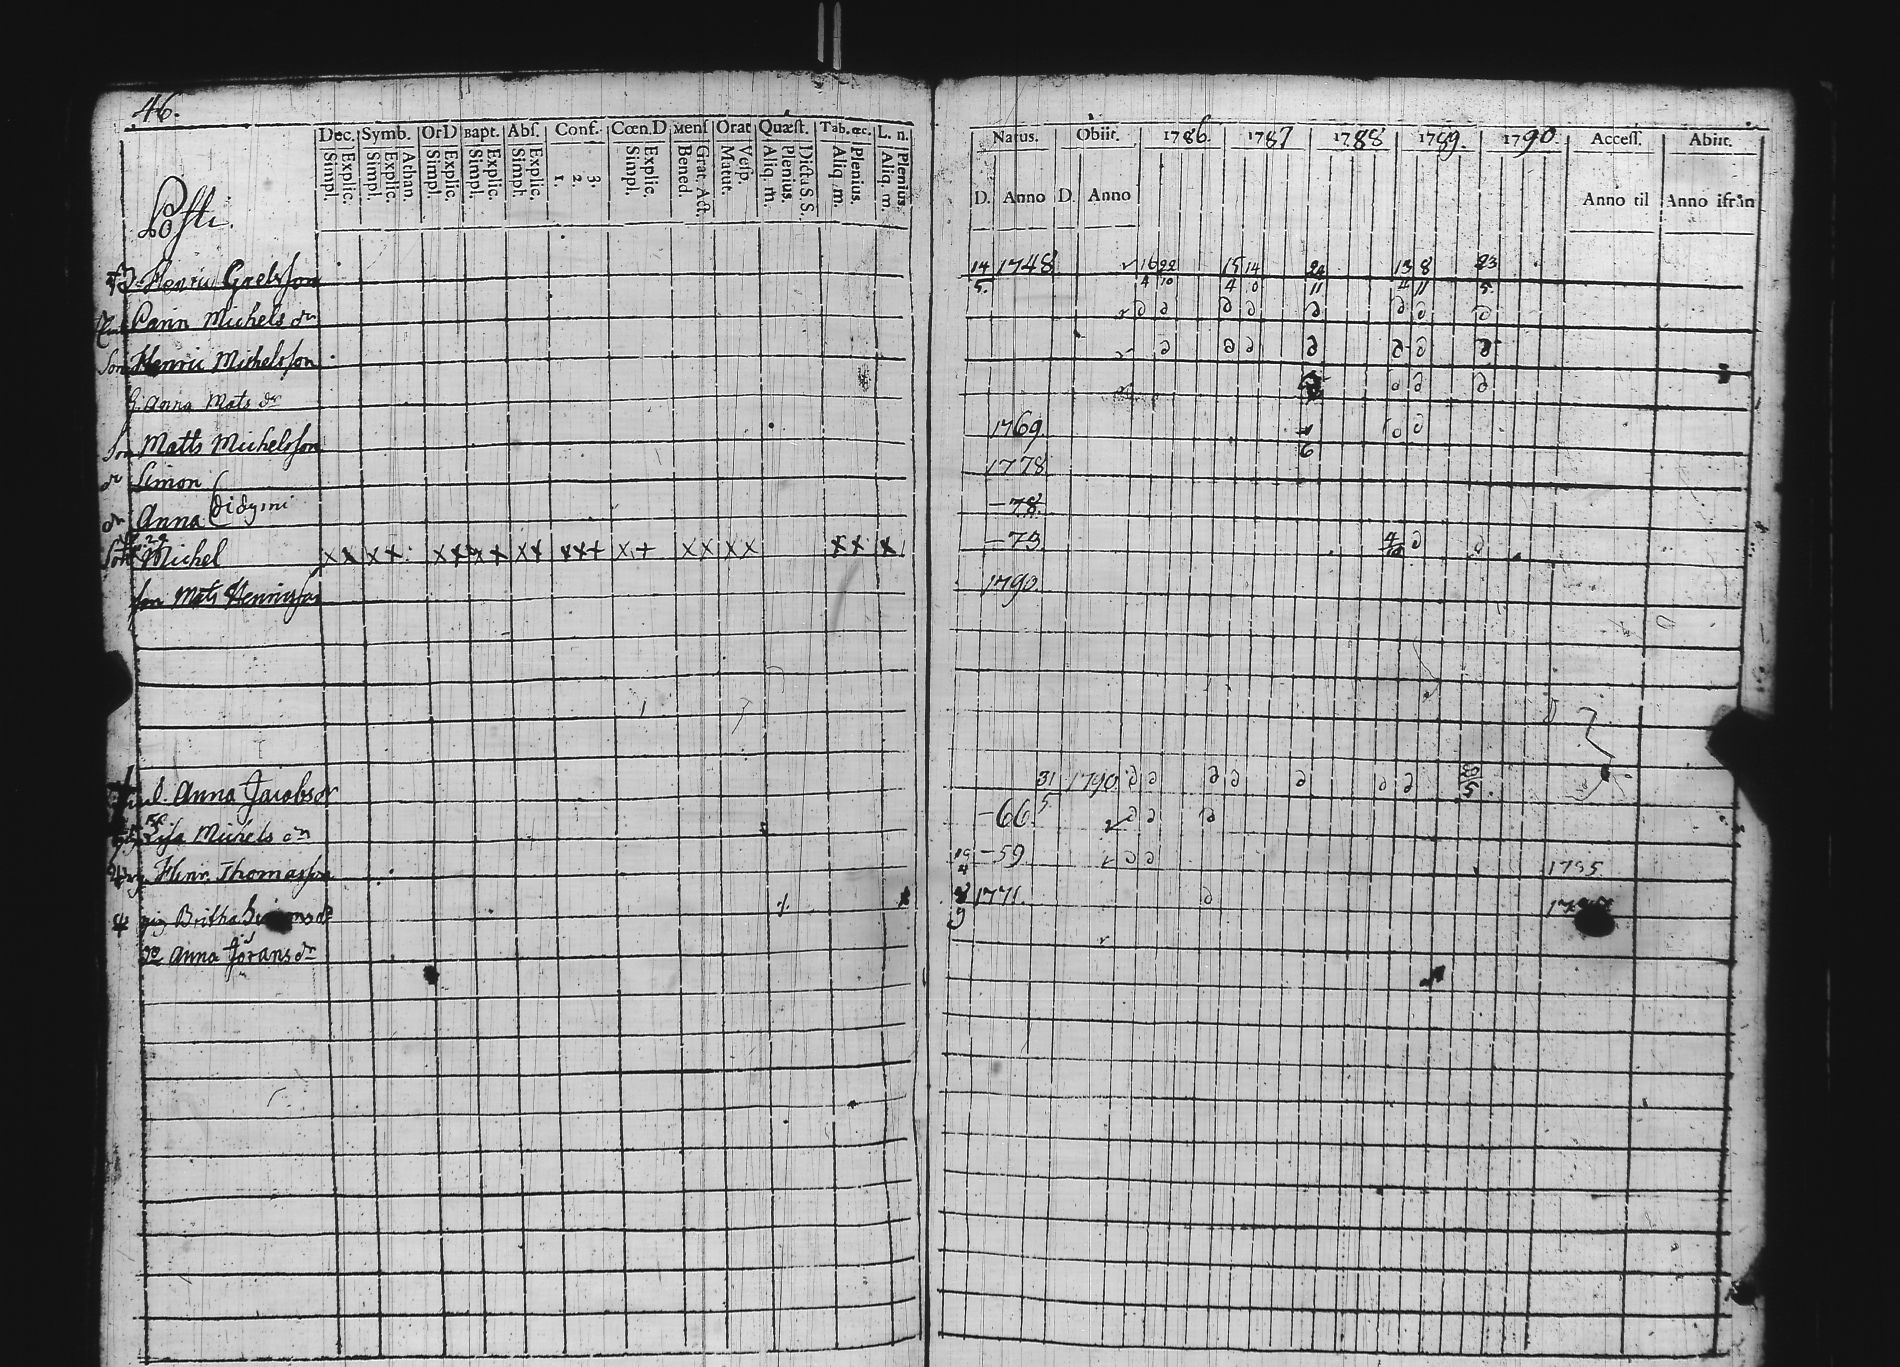 46.
Dec. Symb. OrD Bapt. Abſ. Conf. Cœn.D Menſ Orat Quæſt. Tab. œc. L. n. Natus. Obiit. 1786. 1787 1788 1789. 1790. Acceſſ. Abiit.
Simpl. Explic. Simpl. Explic. Athan. Simpl. Explic. Simpl. Explic. Simpl. Explic. 1. 2. 3. Simpl. Explic. Bened. Grat. Act. Matut. Veſp. Aliq. m. Plenius. Dicta S. S. Aliq. m. Plenius. Aliq. m. Plenius. D. Anno D. Anno Anno til Anno ifrån
Påsti.
Henric Grelsson 14/5. 1748 16/4 22/10 15/4 14 24/11 13/4 8/11 23/5.
Carin Michels dr
Son Henric Michelsson
h. Anna Mats dr
Son Matts Michelsson 1769. 6
Simon 1778
dr Anna Didymi -78.
Son Michel x x x + x x x x x x x x + x + x x x x x x x -73
son Mats Henricsson 1790.
Anna Jacobsdr 31/5 1790
Lisa Michels dr -66.
Henr. Thomasson 19/4 -59 1785
pig Britha Simons dr 9 1771.
do Anna Jörans dr